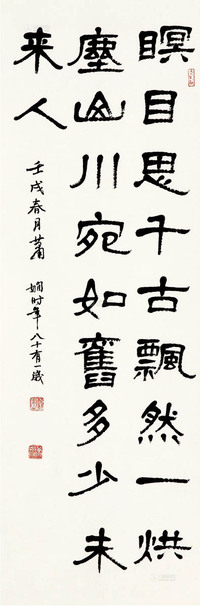 瞑目思千古飄然一烘
塵山川宛如舊多少未
来人
壬戌春月萧
娴时年八十有一岁